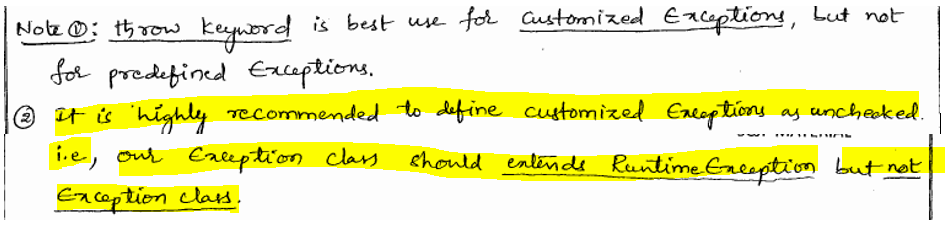 Note ①: throw keyword is best use for Customized Exceptions, but not
for predefined Exceptions.
② It is highly recommended to define customized Exceptions as unchecked.
i.e, our Exception class should extends RuntimeException but not
Exception class.